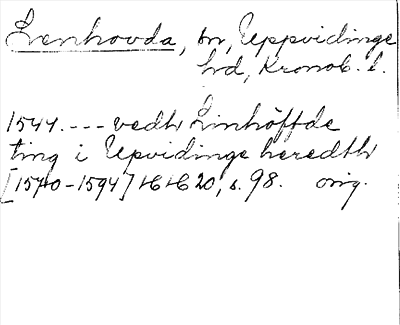 Lenhovda, sn, Uppvidinge
hd, Kronob. l.
1544. --- vedh Linhöffde
ting i Upvidinge heredth
[1540-1594] HH 20, s. 98. orig.